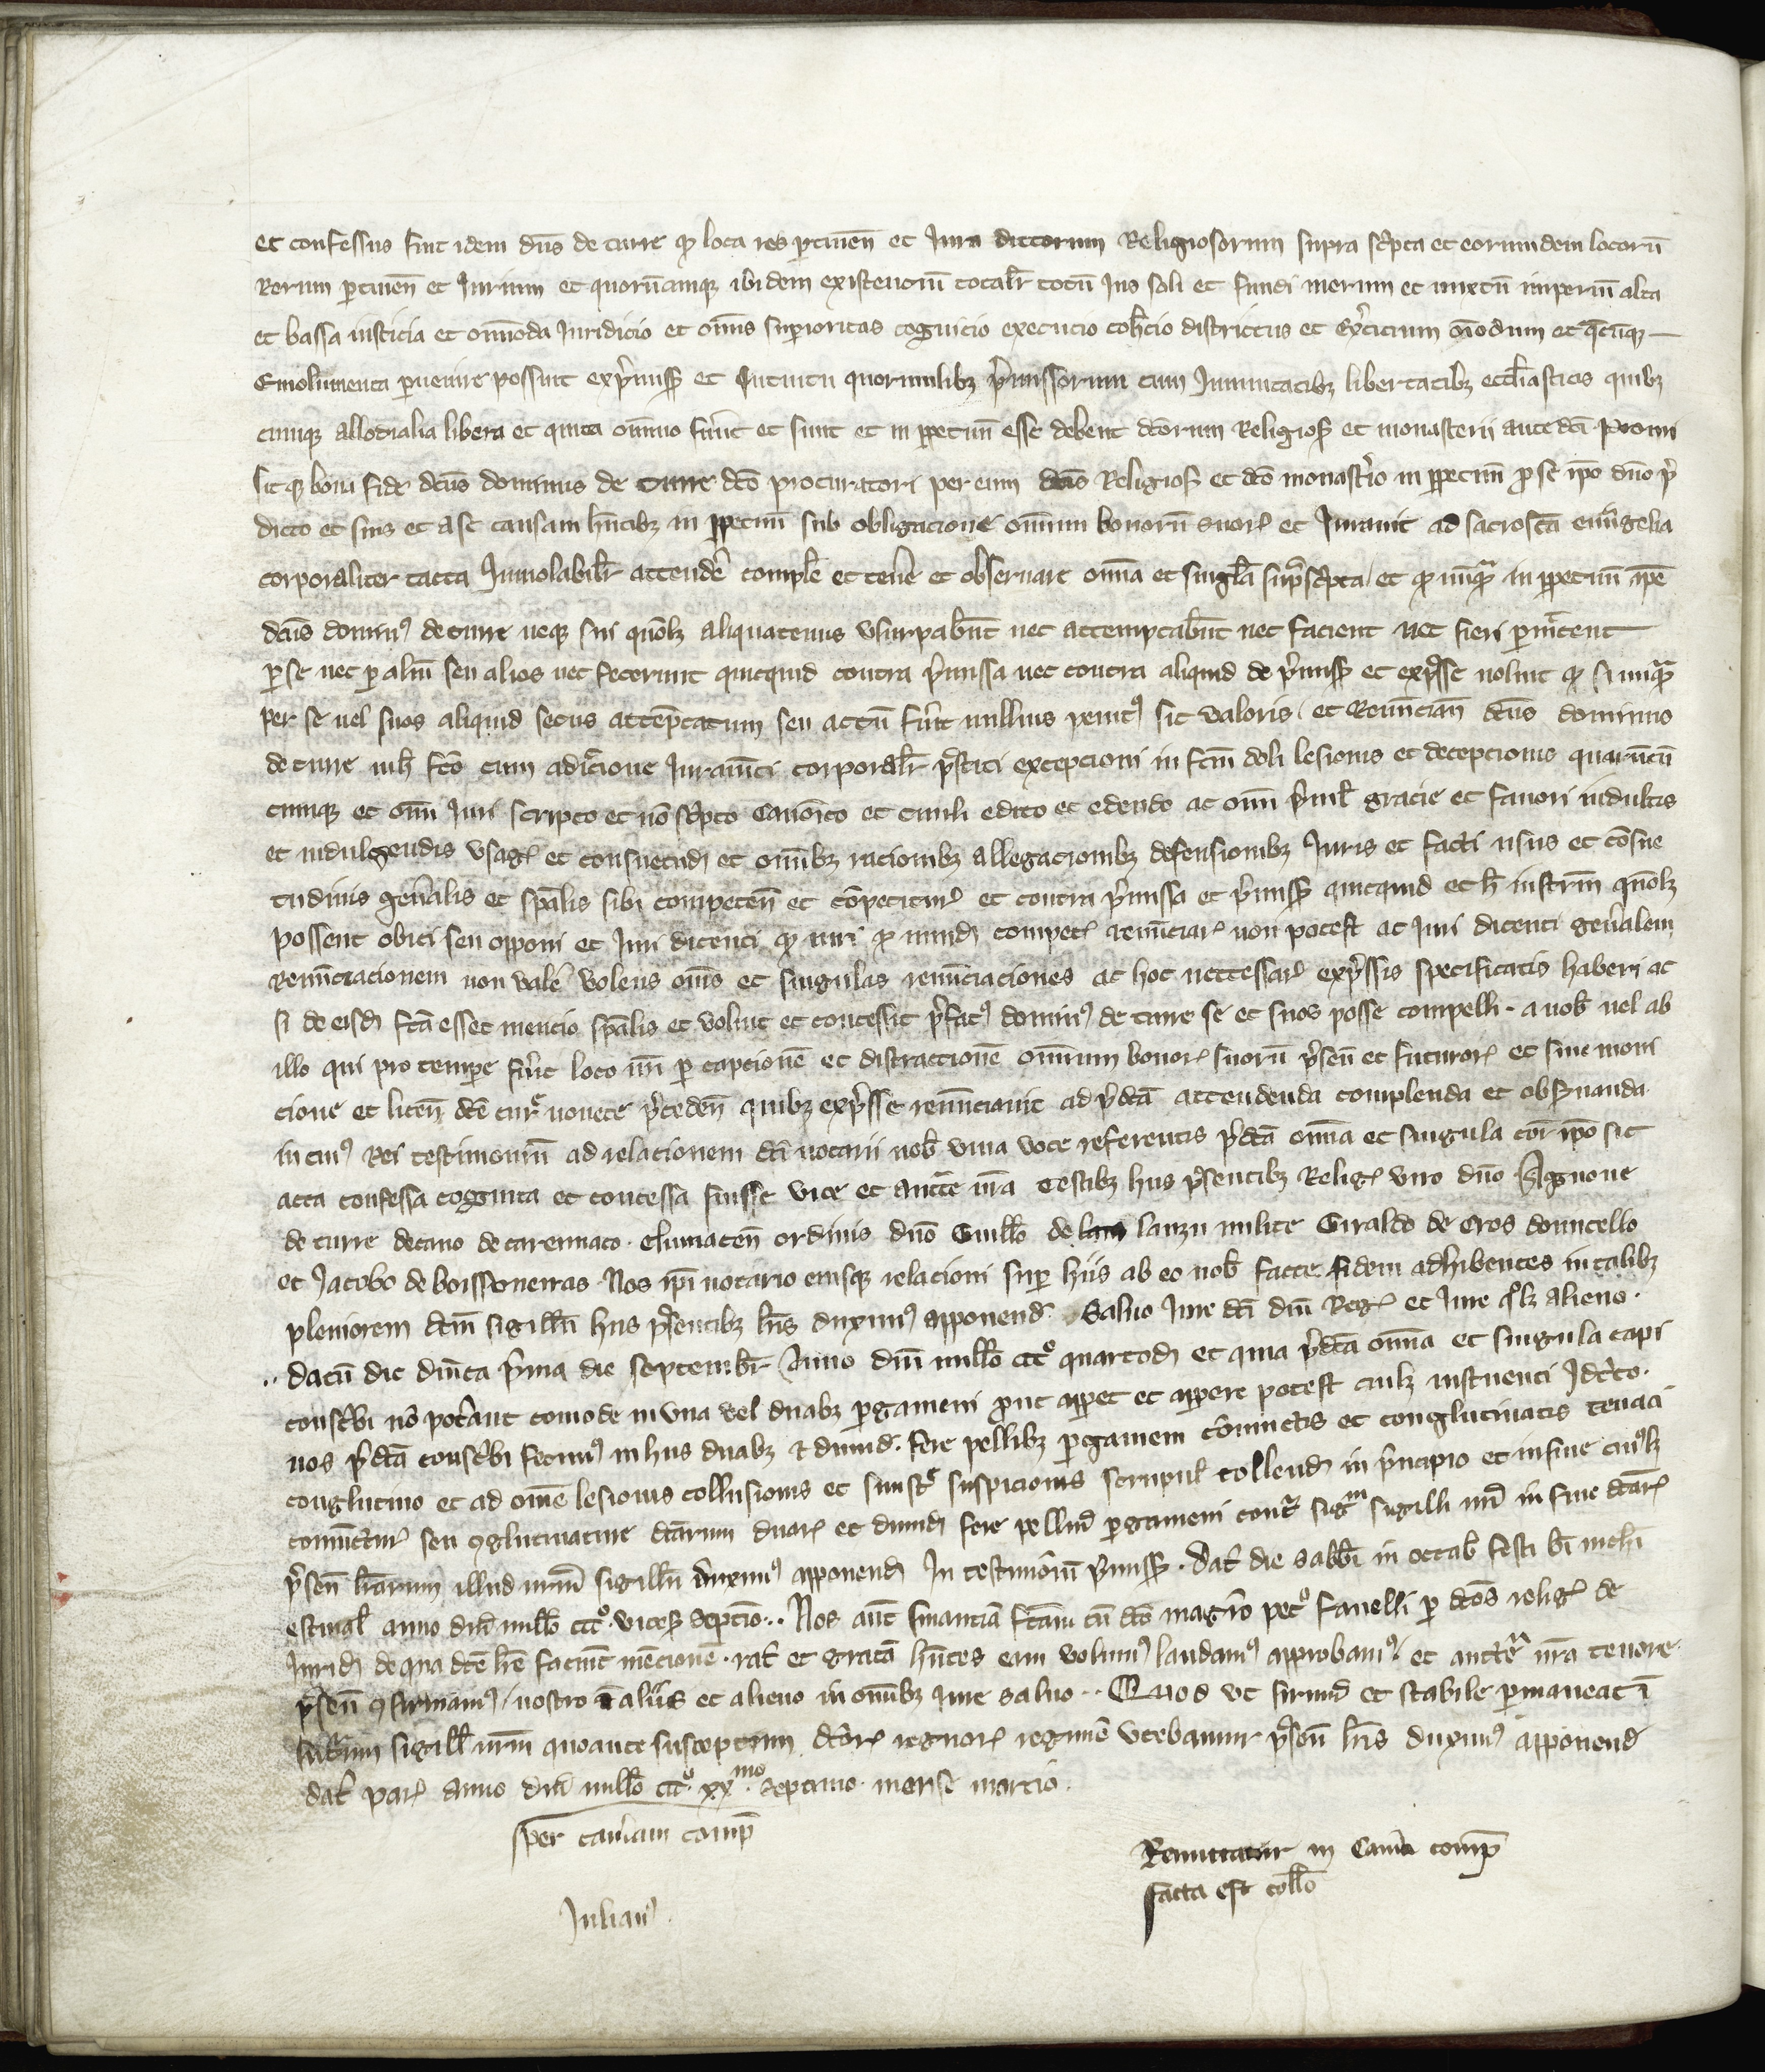 et confessus fuit idem dns de turre q loca res ptinen et Jura dictorum Religiosorum supra scpta et eorumdem locoru
Rerum ptinen et Jurium et quorucumque ibidem existentiu totalr totu Jus soli et fundi merum et mixtu imperiu alta
et bassa iusticia et omoda Juridicio et omis superioritas cognicio execucio cohcio districtus et Excicium omodum et qcuq
Emolumenta puenire possunt ex pmiss et Intuitu quorumlibz pmissorum cum Jmunitatibz libertatibz ecclesiasticis quibz
cumqz allodialia libera et quita omnino fuerut et sunt et in ppetuu esse debent dcorum Religios et monasterii antedci Promi
sitqz bona fide dcus dominus de turre dco procuratori per eum dcis Religios et dco monastio in ppetuu p se ipo dno p
dicto et suis et a se causam hntibz in ppetuu sub obligacione omnium bonoru suor et Jurauit ad sacroscta euugelia
corporaliter tacta Inuiolabilr attende comple et tene et obseruare omnia et singla supscpta et q nuq in ppetuu ipe
dcus dominus de turre neqz sui quolz aliquatenus vsurpabut nec attemptabut nec facient nec fieri pmittent
p se nec p aliu seu alios nec fecerunt quicquid contra pmissa nec contra aliquid de pmiss et expsse uoluit q si nuq
per se uel suos aliquid secus attemptatum seu actu fuit nullius penit sit valoris et Renuncian dcus dominus
de turre in h fco cum adicione Jurameti corporalr pstiti excepcioni in fcm doli lesionis et decepcionis quarucu
cumqz et omi Juri scripto et no scpto Canonico et ciuili edito et edendo ac omi priuil gracie et fauori indultis
et indulgendis vsag et consuetud et omibz racionibz allegacionibz defensionibz Juris et facti usus et cosue
tudinis generalis et spalis sibi competen et copetitur et contra pmissa et pmiss quicquid et h instrm quolz
possent obici seu opponi et Juri dicenti q iuri p nund compet renuciar non potest ac Juri dicenti generalem
Renunciacionem non vale volens omes et singulas renunciaciones ac hoc neccessar expssis specificatis haberi ac
si de eisd fca esset mencio spalis et voluit et concessit pfatus dominus de turre se et suos posse compelli a nob uel ab
illo qui pro tempore fuit loco nri p captione et distractione omnium bonor suoru psen et futuror et sine moni
cione et licen dce cur nouete pceden quibz expsse renunciauit ad pdca attendenda complenda et obseruanda
in cuius Rei testimoniu ad relacionem dci notarii nob viua voce referentis pdca omnia et singula cor ipo sit
acta confessa cognita et concessa fuisse vice et aucte nra testibz hiis psentibz Relig viro dno Agnone
de turre decano de carennaco cluniacen ordinis dno Guillo de lanzu milite Giraldo de eros domicello
et Jacobo de boissoneiras Nos ipi notario eiusqz relacioni super hiis ab eo nob facte fidem adhibentes in talibz
pleniorem dcm sigillu hiis psentibz lris duximus apponend Saluo Jure dci dni Reg et Jure quolz alieno
datu die diuica pma die septembr Anno dni millo ccc quartod et quia pdca omnia et singula capi
conscbi no potant comode in vna vel duabz pgameni prout apparet et apparere potest cuilz instuenti Jdcirco
nos pdca conscbi fecimus in hiis duabz et dimid fere pellibz pgameni coniuctis et conglutinatis tenaci
conglutino et ad omne lesionis collusionis et sinistr suspicionis scrupul tollend in principio et in fine cuiuslz
coniuctur seu conglutinature dcarum duar et dimid fere pelliu pgameni contra sigm sigilli nri in fine dcar
psen lrarum illud nrm sigillu duximus apponend In testimoniu pmiss dat die sabbi in octab festi bi michi
estiual anno dni millo ccc viceso septimo Nos aut financia fcam cu dco magro petro fauelli p dcos relig de
Jurid de qua dce lre faciut mencione rat et grata hntes eam volumus laudamus approbamus et aucte nra tenore
psen confirmamus nostro i aliis et alieno in omibz iure saluo Quod ut firmu et stabile pmaneat i
futurum sigill nrm quo ante susceptum dcor regnor regime vtebamur psen lris duximus apponend
dat par anno dni millo ccc xxmo septimo mense marcio
per camam comp
Renunciatur in Cama comp
facta est collo
Julian